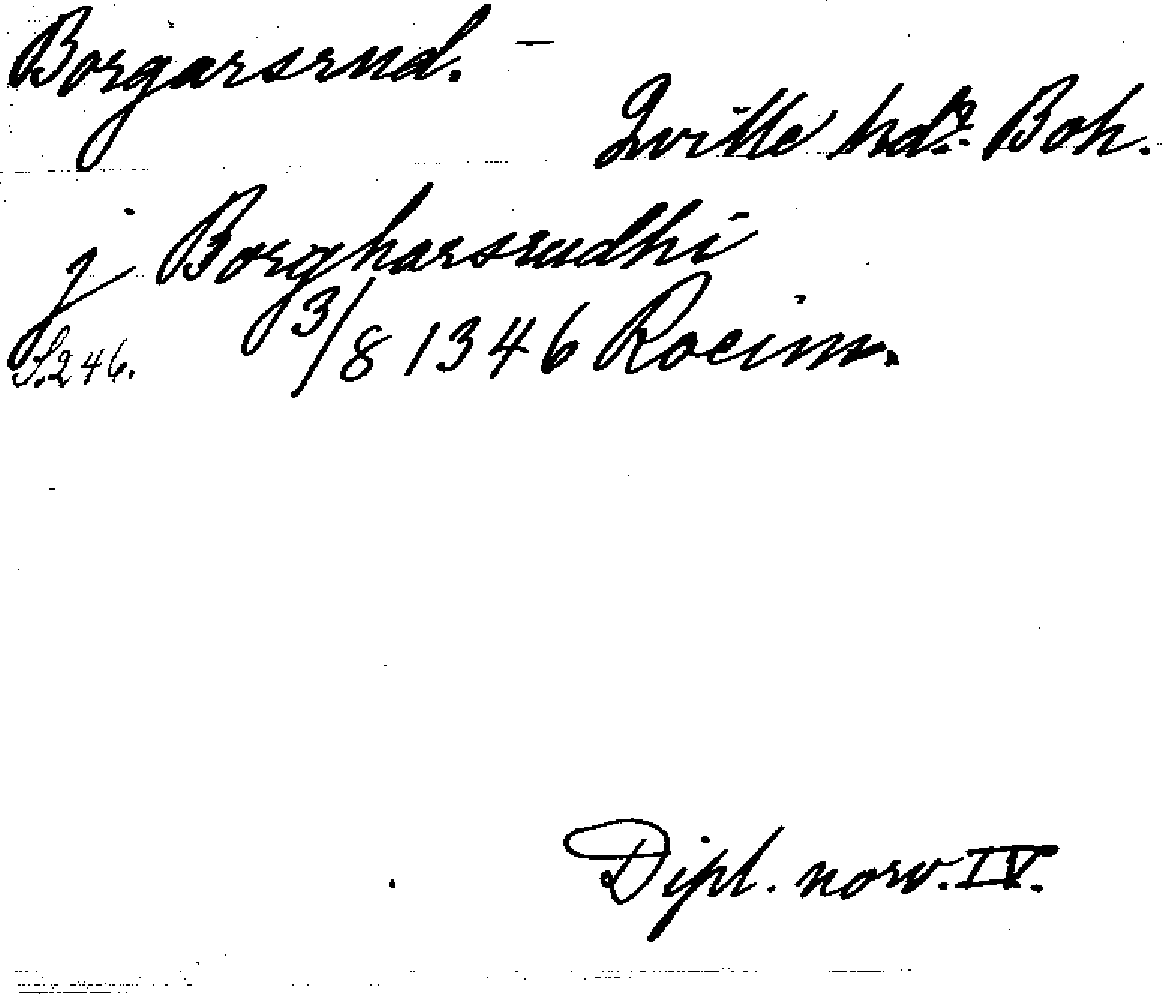 Borgarsrud. –
Qville hds. Boh.
j Borgharsrudhi
S. 246. 3/8 1346 Rocinn.
Dipl. norv. IV.